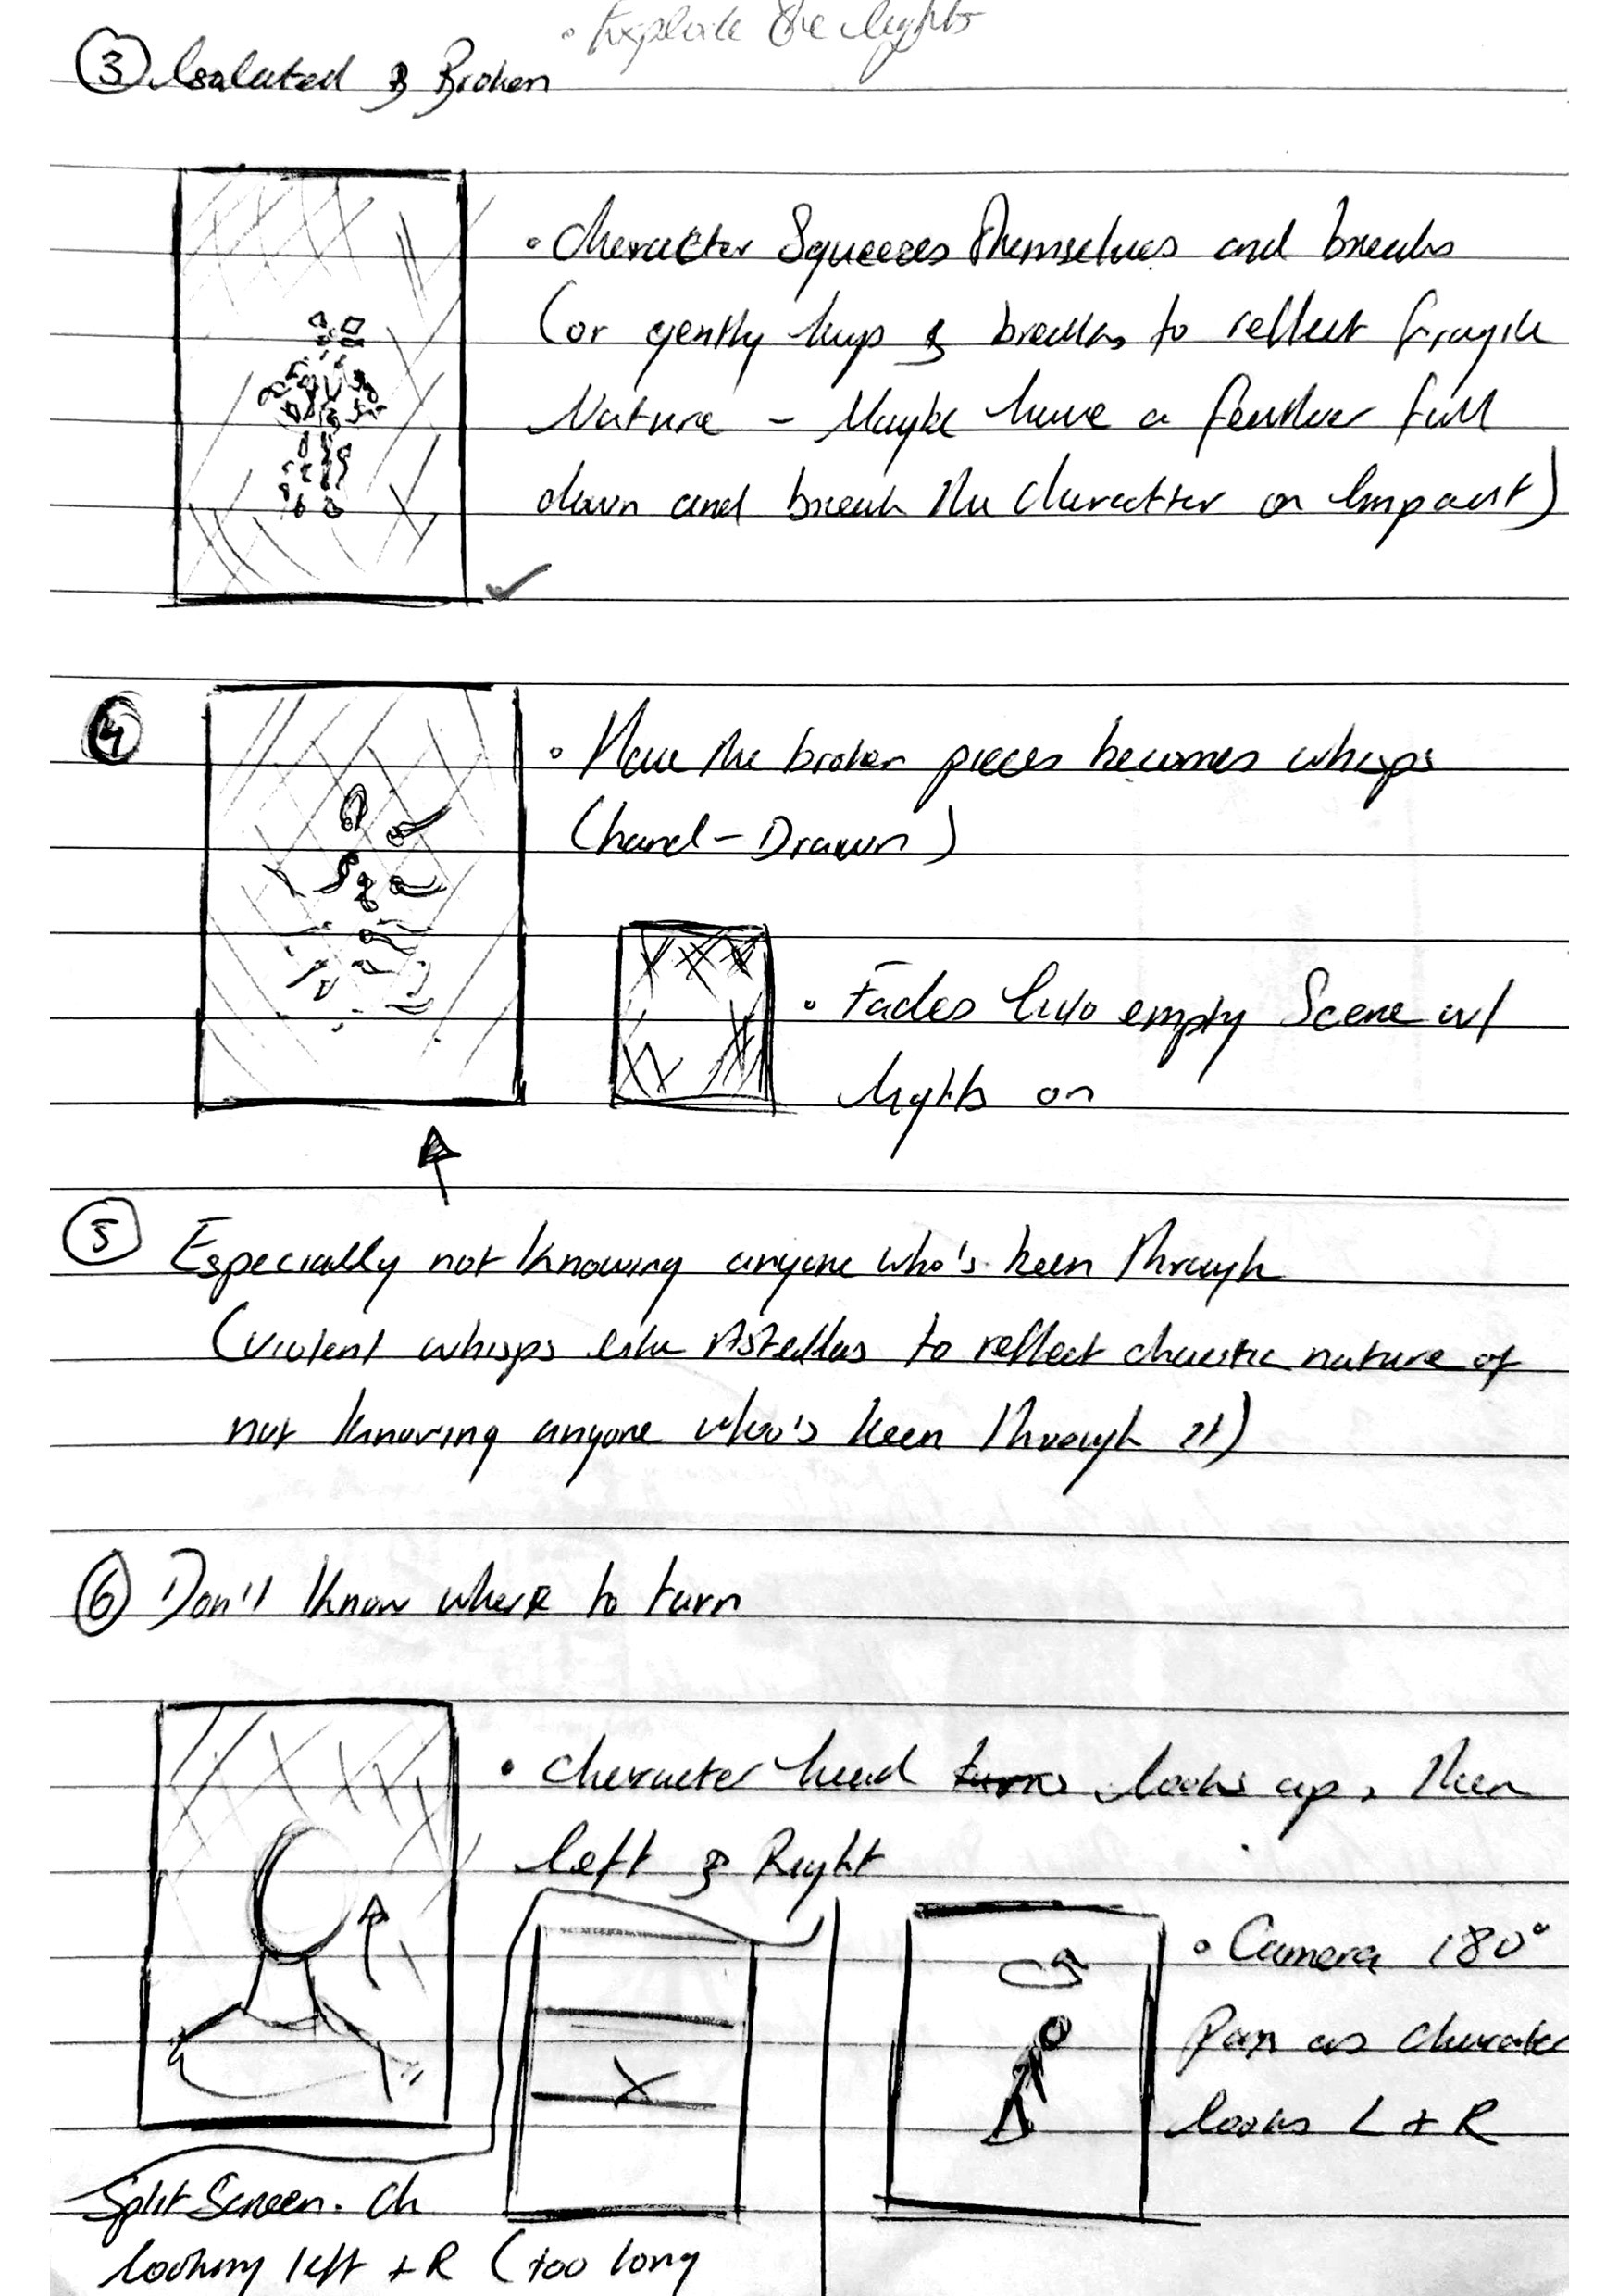 • Explode the lights
③ Isolated & Broken
• Character Squeezes Themselves and breaks
(or gently hugs & breaks to reflect fragile
Nature – Maybe have a feather fall
down and break the character on Impact)
④
• Have the broken pieces becomes whisps
(hand-Drawn)
• Fades into empty Scene w/
lights on
⑤ Especially not knowing anyone who's been through
(violent whisps like Astellas to reflect chaotic nature of
not knowing anyone who's been through it)
⑥ Don't know where to turn
• Character head turns looks up, then
left & Right
• Camera 180°
Pan as character
looks L + R
Split Screen. Ch
looking left + R (too long